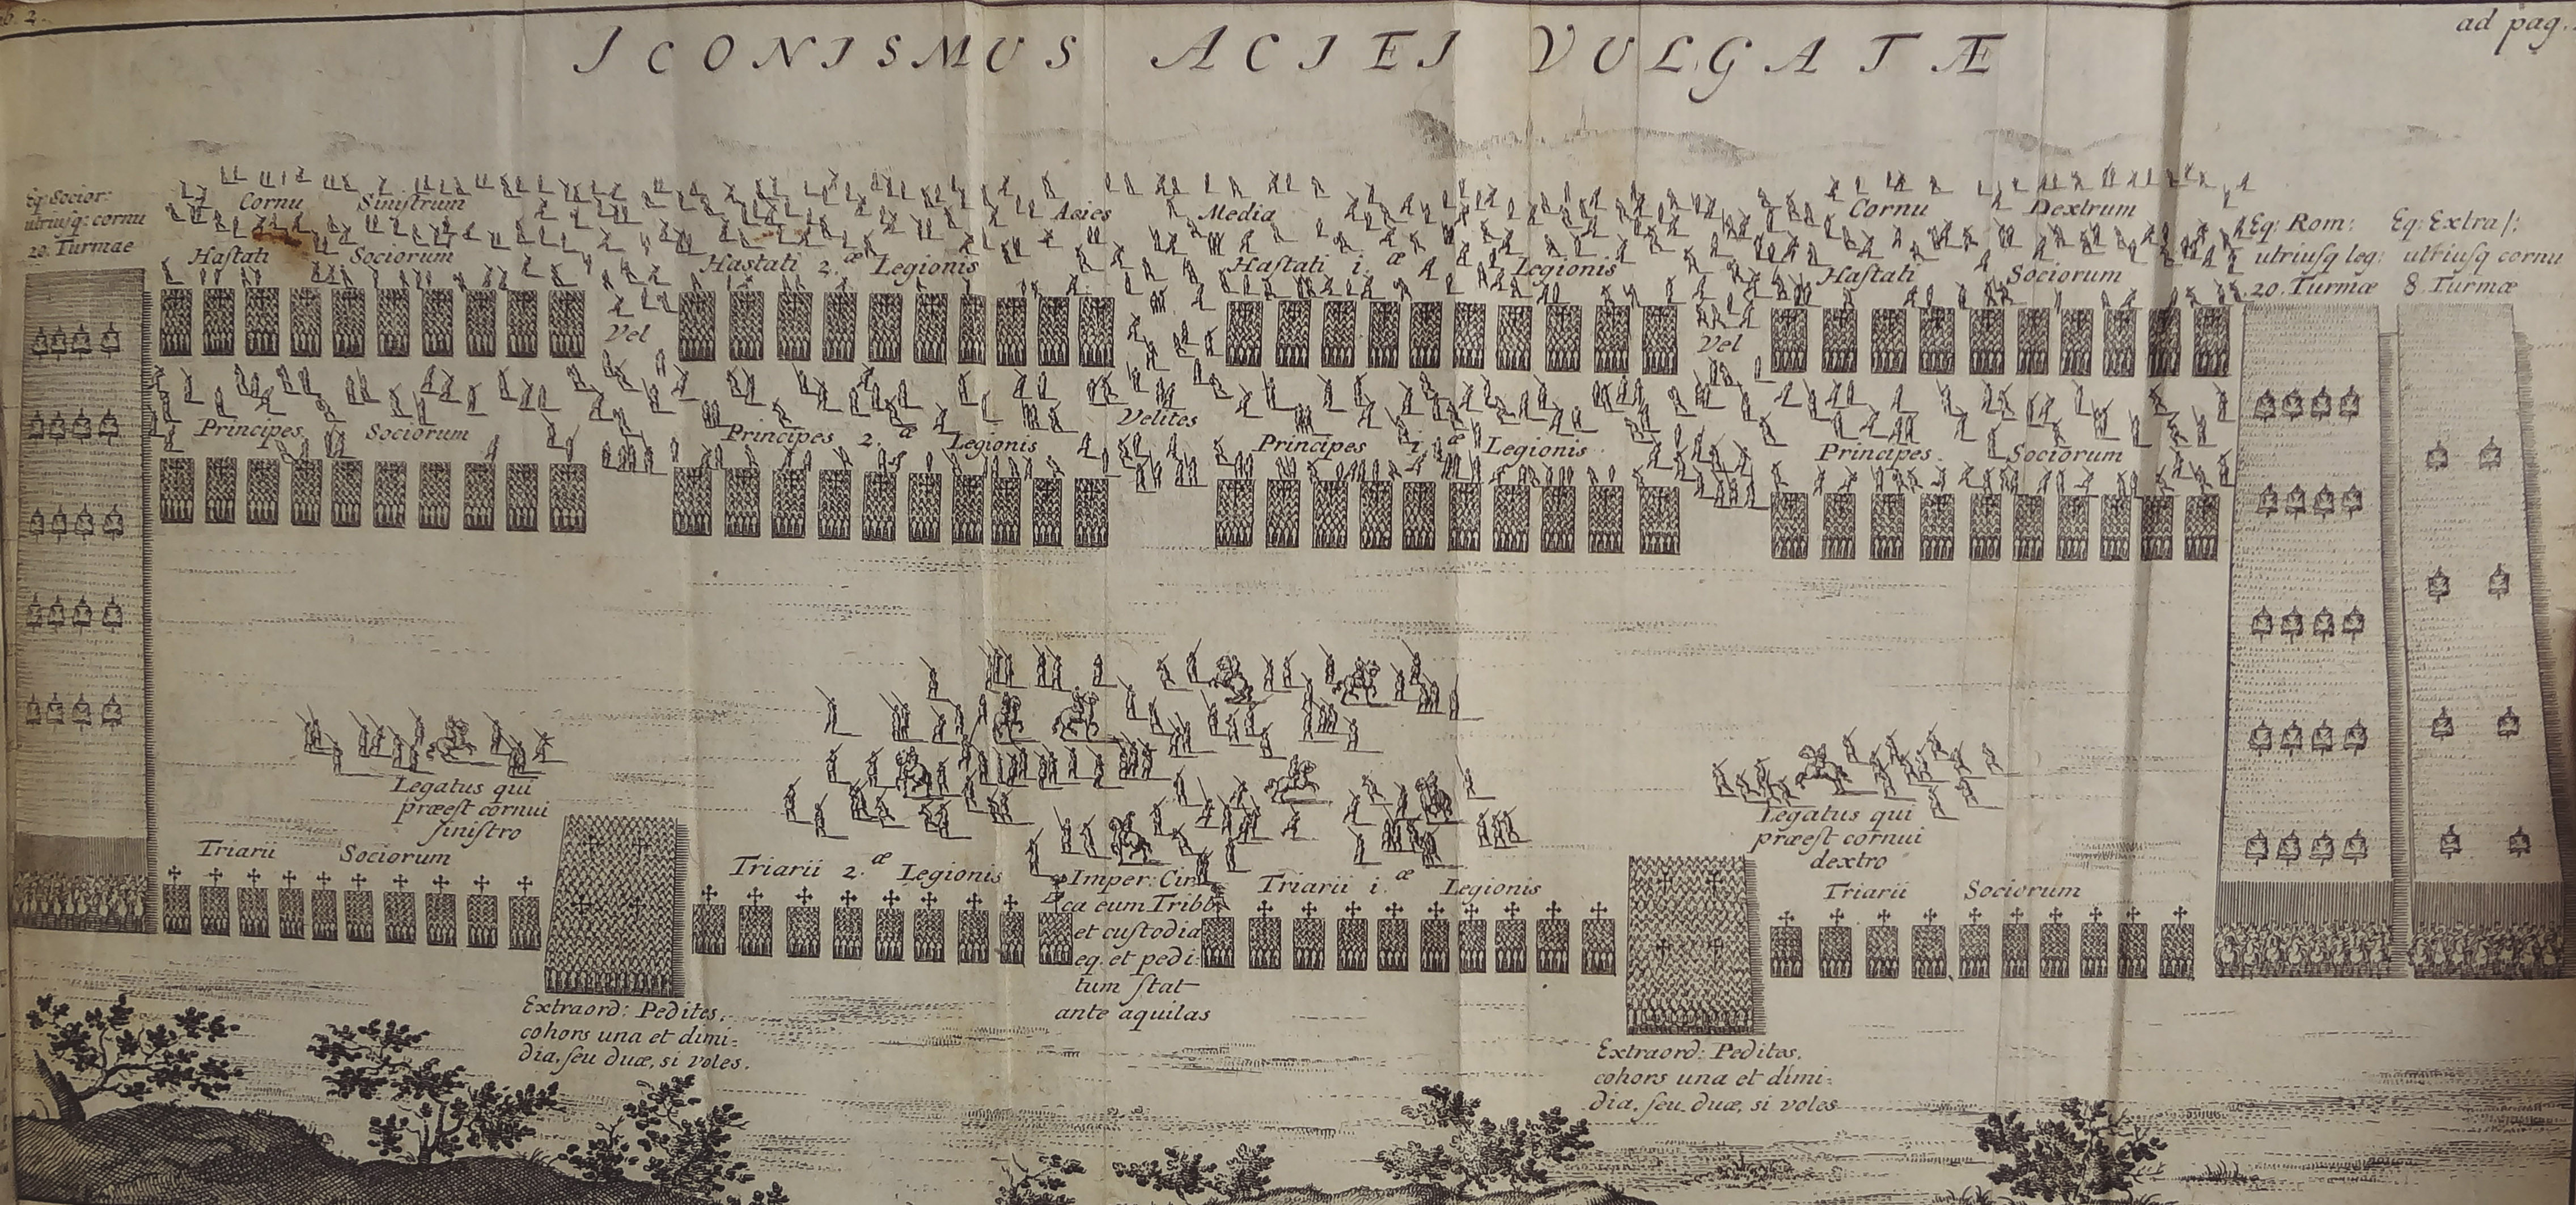 ad pag.
ICONISMUS ACIEI VULGATÆ
Eq: Socior:
utriusq: cornu
20. Turmae
Cornu Sinistrum
Acies Media
Cornu Dextrum
Eq: Rom:
utriusq leg:
20. Turmæ
Eq: Extra
utriusq cornu
8 Turmæ
Hastati Sociorum
Hastati 2.æ Legionis
Hastati i.æ Legionis
Hastati Sociorum
Vel
Vel
Velites
Principes Sociorum
Principes 2.æ Legionis
Principes i.æ Legionis
Principes Sociorum
Legatus qui
præest cornui
sinistro
Legatus qui
præest cornui
dextro
Triarii Sociorum
Triarii 2.æ Legionis
Imper: Cir
ca eum Tribb
et custodia
eq. et pedi:
tum stat
ante aquilas
Triarii i.æ Legionis
Triarii Sociorum
Extraord: Pedites.
cohors una et dimi:
dia, seu duæ, si voles.
Extraord: Pedites.
cohors una et dimi:
dia, seu duæ, si voles